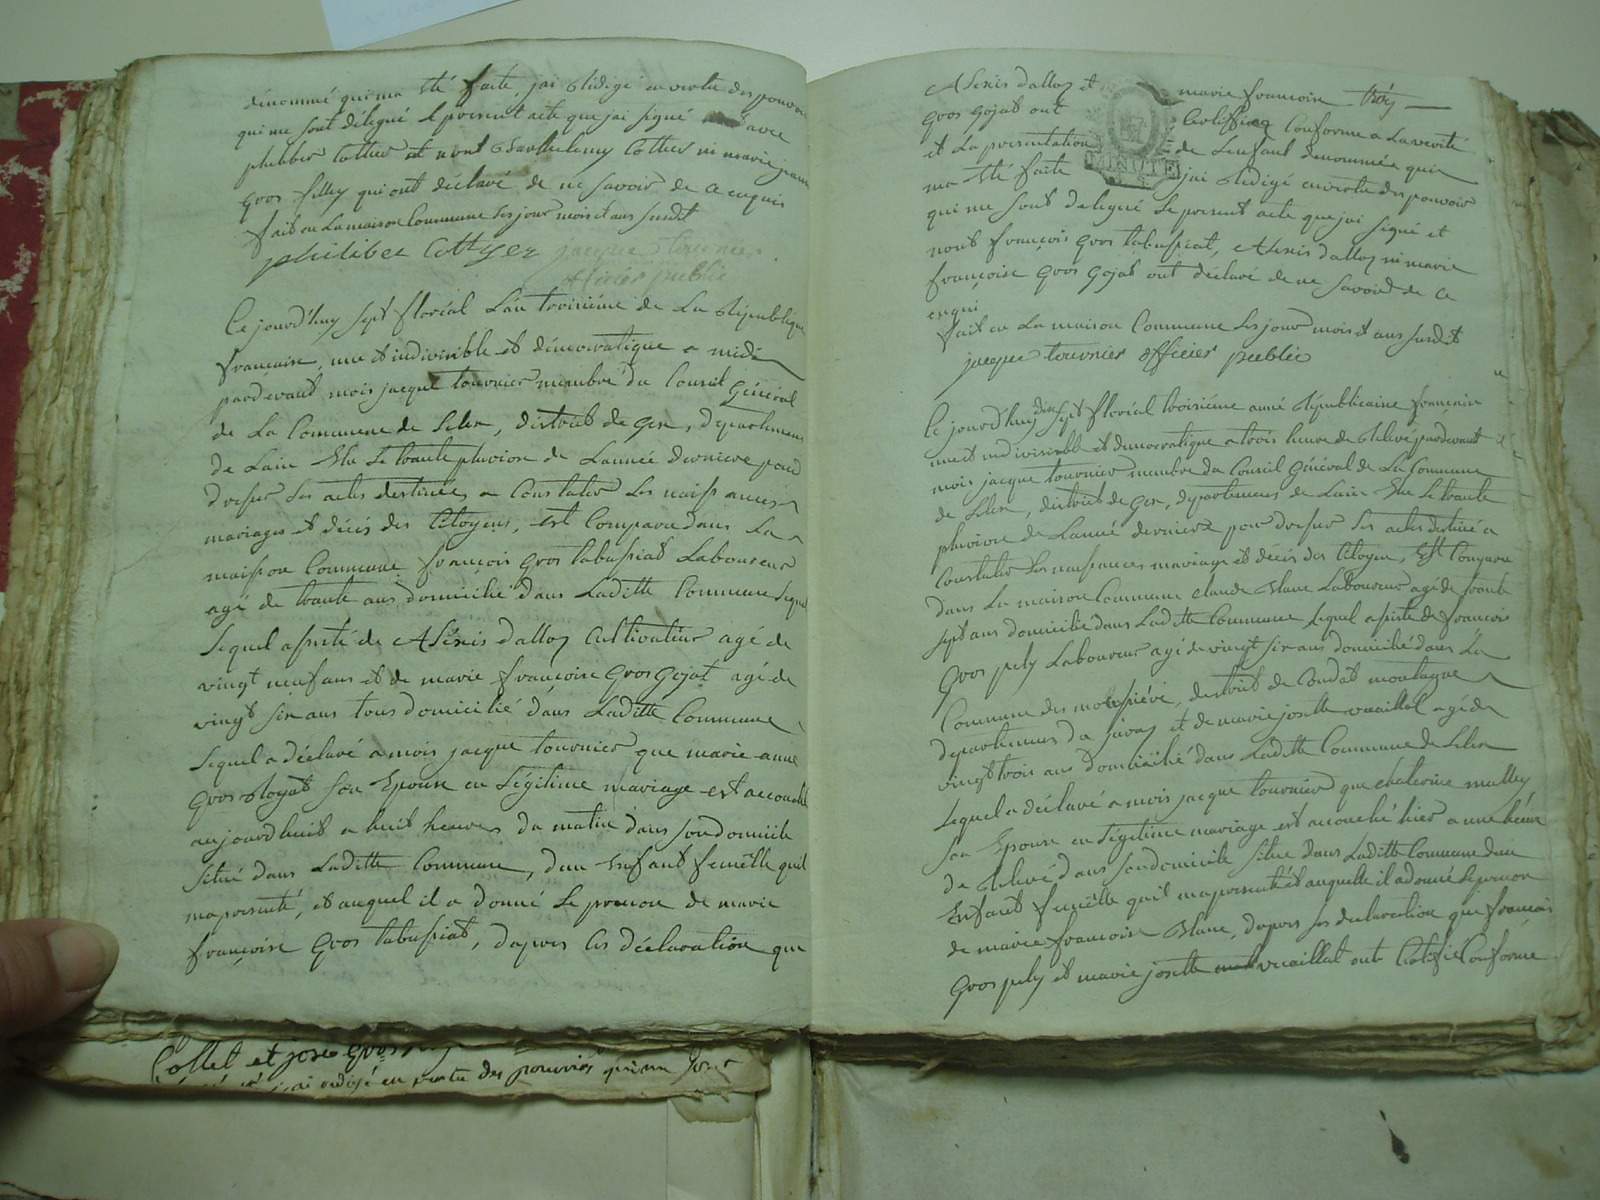 dénommé qui ma été faite, jai Rédigé en vertu des pouvoir
qui me sont délégué le present acte que jai signé avec
philiber Cottier et nont Barthelemy Cottier ni marie jeanne
gros filley qui ont déclaré de ne savoir de ce enquis
fait en La maison Commune Les jour mois et ans susdit
philiber Cottyer jacque tournier
officier public
Ce jourd'huy sept floréal Lan troisiéme de La République
francaise, une et indivisible et démocratique a midi
pardevant mois jacque tournier membre du Conseil Général
de La Commune de Lelex, district de gex, département
de Lain Elu Le trante pluviose de Lannée derniere pour
dresser Les actes destinées a Constater Les naissances
mariages et décés des Citoyens, est Comparu dans La
maison Commune françois gros tabussiat Laboureur
agé de trante ans domicilié dans Laditte Commune
Lequel assisté de Alexis dalloz Cultivateur agé de
vingt neuf ans et de marie françoise gros gojat agé de
vingt six ans tous domicilié dans Laditte Commune
Lequel a déclaré a mois jacque tournier que marie anne
gros son Epouse en Légitime mariage est accouché
aujourdhuit a huit heures du matin dans son domicile
situé dans Laditte Commune, d'un Enfant femélle quil
ma présenté, et auquel il a donné Le prenon de marie
françoise gros tabussiat, dapres Les déclaration que
Alexis dalloz et marie francoise trois
gros gojat ont Certiffiez Conforme a La verité
et La presentation de Lenfant denommée qui
MINUTE
ma été faite jai Rédigé en vertu des pouvoir
qui me sont delegué Le present acte que jai signé et
nont françois gros tabussiat, Alexis dalloz ni marie
françoise gros gojat ont déclaré de ne savoir de ce
enqui
fait en La maison Commune Les jour mois et ans susdit
jacque tournier officier public
Ce jourd'huy dix sept floréal troisiéme anné Républicaine françaisse
une et indivisible et démocratique a trois heure de Relevé pardevant
mois jacque tournier membre du Conseil Général de La Commune
de Lelex, district de gex, département de Lain Elu Le trante
pluviose de Lanné derniere pour dresser Les actes destiné a
Constater Les naissances mariage et décés des Citoyen, Est Comparu
dans La maison Commune claude Blanc Laboureur agé de trante
sept ans domicilié dans Laditte Commune Lequel assisté de françois
gros pely Laboureur agé de vingt six ans domicilié dans La
Commune des , district de Condat montagne
departement du jura et de marie josette vuaillat agé de
vingt trois ans domicilié dans Laditte Commune de Lelex
Lequel a déclaré a mois jacque tournier que
son Epouse en Légitime mariage est accouché hier a une heure
de Relevé dans son domicile situé dans Laditte Commune dun
Enfant femélle quil ma présenté et auquelle il a donné Le prenon
de marie francoise Blanc, dapres Les declaration que françois
gros pely et marie josette vuaillat ont Certifié Conforme
Collet et jose gros
jai redigé en vertu des pouvoirs qui me sont